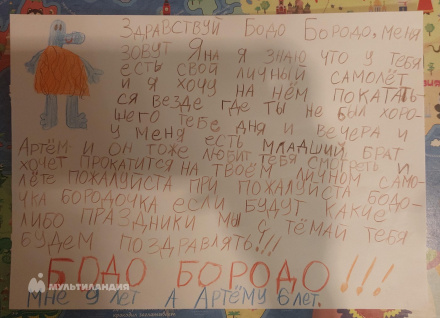 Здравствуй Бодо Бородо, меня
зовут Яна я знаю что у тебя
есть свой личный самолёт
и я хочу на нём покатать
ся везде где ты не был хоро-
шего тебе дня и вечера и
у меня есть младший брат
Артём и он тоже любит тебя смотреть и
хочет прокатится на твоём личном само-
лёте пожалуйста при пожалуйста бодо-
чка бородочка если будут какие
либо праздники мы с тёмай тебя
будем поздравлять!!!
БОДО БОРОДО!!!
МУЛЬТИЛАНДИЯ
мне 9 лет а Артёму 6 лет.